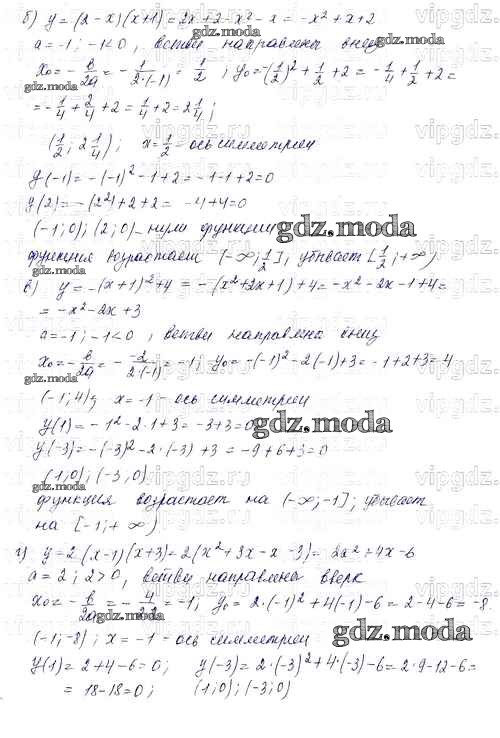 б) y = (2 - x)(x+1) = 2x + 2 - x² - x = -x² + x + 2
a = -1; -1<0, ветви направлены вниз
x₀ = -b/2a = -1/(2·(-1)) = 1/2; y₀ = -(1/2)² + 1/2 + 2 = -1/4 + 1/2 + 2 =
gdz.moda
= -1/4 + 2/4 + 2 = 1/4 + 2 = 2 1/4;
(1/2; 2 1/4); x = 1/2 - ось симметрии
y(-1) = -(-1)² - 1 + 2 = -1 - 1 + 2 = 0
y(2) = -(2²) + 2 + 2 = -4 + 4 = 0
(-1; 0); (2; 0) - нули функции
gdz.moda
функция возрастает (-∞; 1/2], убывает [1/2; +∞)
gdz.moda
в) y = -(x+1)² + 4 = -(x² + 2x + 1) + 4 = -x² - 2x - 1 + 4 =
= -x² - 2x + 3
a = -1; -1<0, ветви направлены вниз
x₀ = -b/2a = -2/(2·(-1)) = -1; y₀ = -(-1)² - 2(-1) + 3 = -1 + 2 + 3 = 4
gdz.moda
(-1; 4); x = -1 - ось симметрии
y(1) = -1² - 2·1 + 3 = -3 + 3 = 0
gdz.moda
y(-3) = -(-3)² - 2·(-3) + 3 = -9 + 6 + 3 = 0
(1; 0); (-3; 0)
gdz.moda
функция возрастает на (-∞; -1]; убывает
на [-1; +∞)
г) y = 2(x-1)(x+3) = 2(x² + 3x - x - 3) = 2x² + 4x - 6
a = 2; 2>0, ветви направлены вверх
x₀ = -b/2a = -4/2·2 = -1; y₀ = 2·(-1)² + 4(-1) - 6 = 2 - 4 - 6 = -8
gdz.moda
(-1; -8); x = -1 - ось симметрии
gdz.moda
y(1) = 2 + 4 - 6 = 0; y(-3) = 2·(-3)² + 4·(-3) - 6 = 2·9 - 12 - 6 =
= 18 - 18 = 0; (1; 0); (-3; 0)
vipgdz.ru